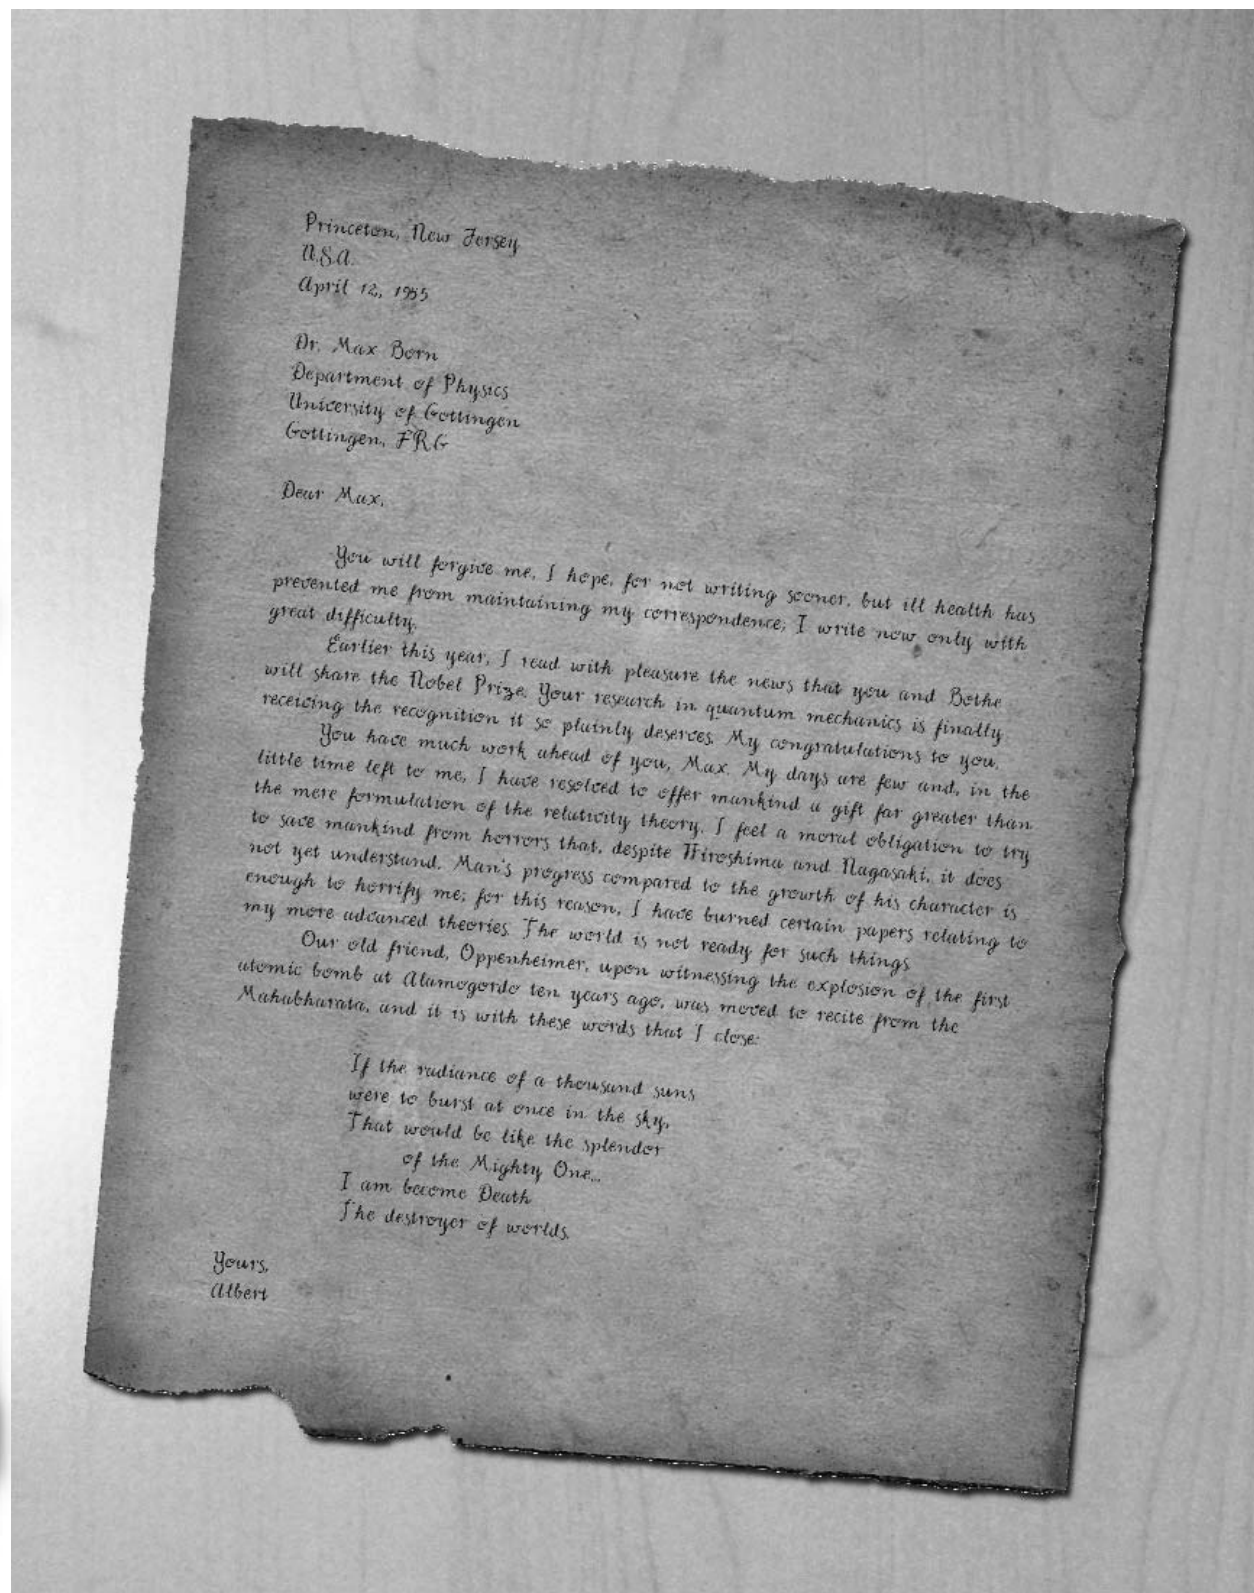 Princeton, New Jersey
U.S.A.
April 12, 1955
Dr. Max Born
Department of Physics
University of Gottingen
Gottingen, FRG
Dear Max,
You will forgive me, I hope, for not writing sooner, but ill health has
prevented me from maintaining my correspondence; I write now only with
great difficulty.
Earlier this year, I read with pleasure the news that you and Bothe
will share the Nobel Prize. Your research in quantum mechanics is finally
receiving the recognition it so plainly deserves. My congratulations to you.
You have much work ahead of you, Max. My days are few and, in the
little time left to me, I have resolved to offer mankind a gift far greater than
the mere formulation of the relativity theory. I feel a moral obligation to try
to save mankind from horrors that, despite Hiroshima and Nagasaki, it does
not yet understand. Man's progress compared to the growth of his character is
enough to horrify me; for this reason, I have burned certain papers relating to
my more advanced theories. The world is not ready for such things
Our old friend, Oppenheimer, upon witnessing the explosion of the first
atomic bomb at Alamogordo ten years ago, was moved to recite from the
Mahabharata, and it is with these words that I close:
If the radiance of a thousand suns
were to burst at once in the sky,
That would be like the splendor
of the Mighty One...
I am become Death
The destroyer of worlds.
Yours,
Albert